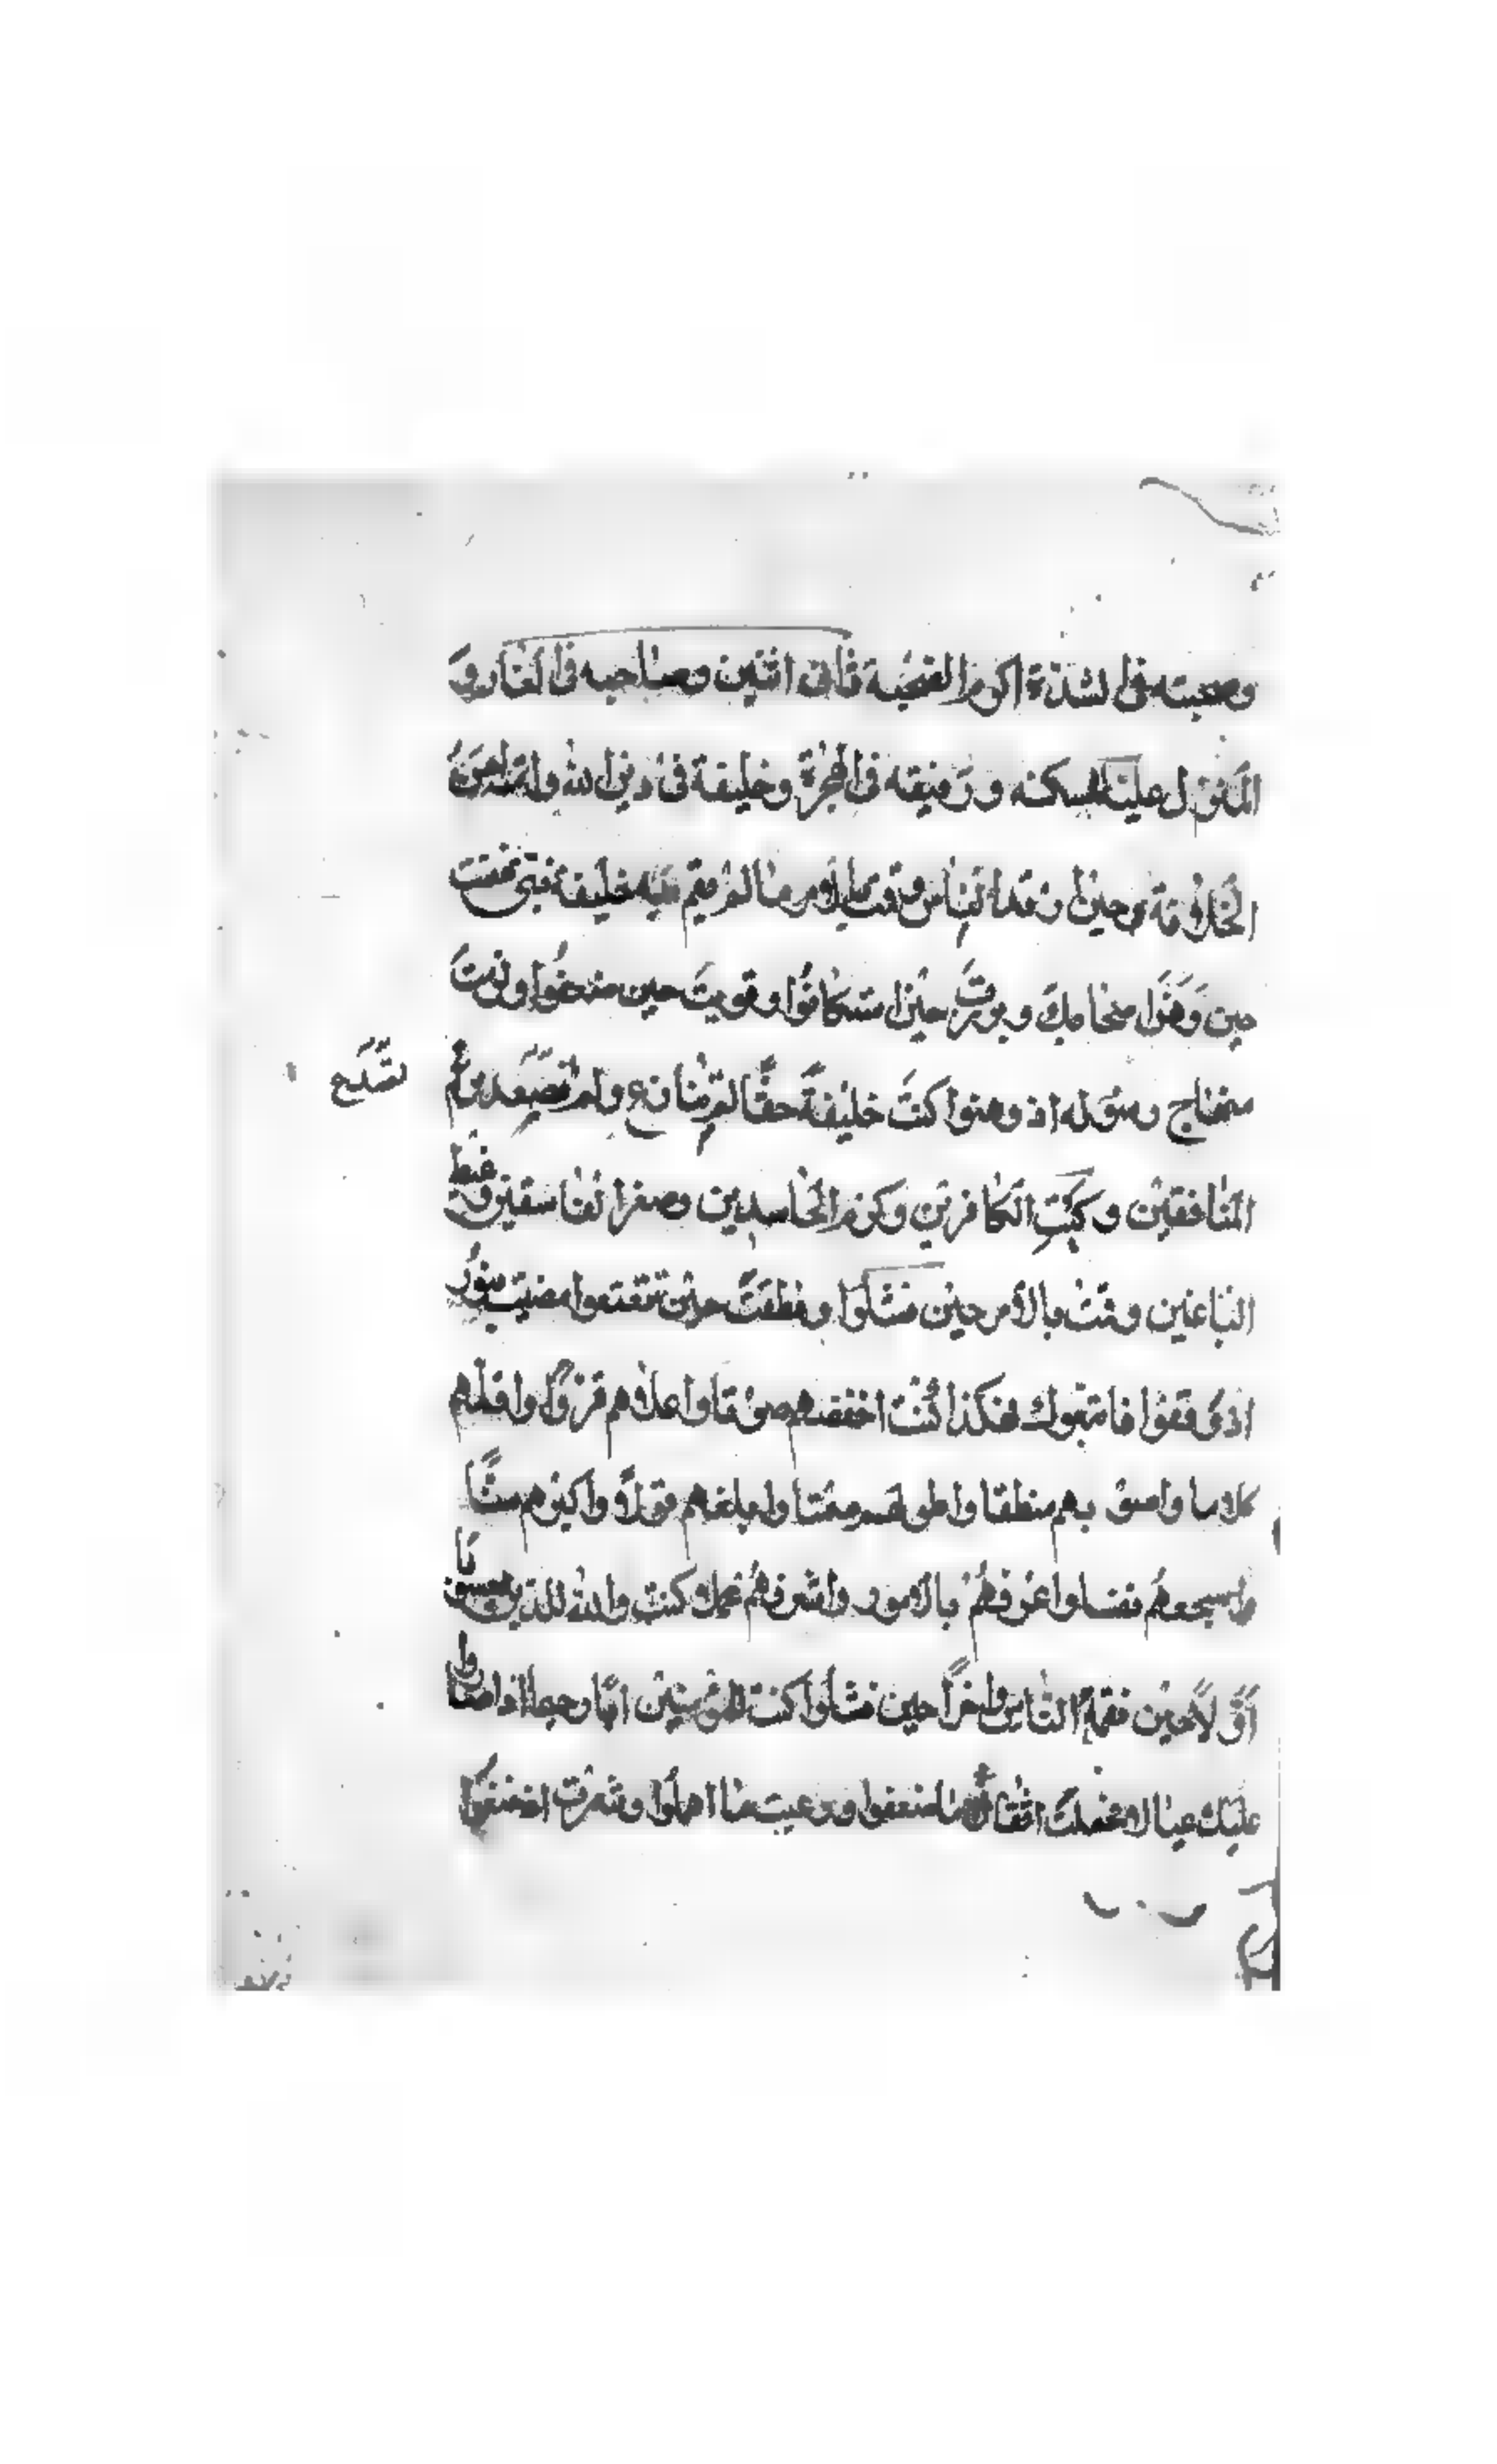 وصحبته في الشدة اكرم الصحبة ثاني اثنين وصاحبه في الغار و
المنزل عليه السكينه ورفيقه في الهجرة وخليفة في دين الله وامته احسن
الخلافة حين ارتد الناس وقمت بالامر ما لم يقم به خليفة نبي نهضت
حين وهن اصحابك وبرزت حين استكانوا وقويت حين ضعفوا ولزمت
منهاج رسوله اذ وهنوا كنت خليفة حقا لم تنازع ولم تصدع برغم
تصدع
المنافقين وكبت الكافرين وكره الحاسدين وصغر الفاسقين وغيظ
الباغين وقمت بالامر حين فشلوا ونطقت حين تتعتعوا مضيت بنور
اذ وقفوا فاتبعوك فهدوا كنت اخفضهم صوتا واعلاهم قوة واقلهم
كلاما واصوبهم منطقا واطولهم صمتا وابلغهم قولا واكبرهم
واشجعهم نفسا واعرفهم بالامور واشرفهم عملا كنت والله للدين يعسوبا
اولا حين نفر الناس واخرا حين فشلوا كنت للمؤمنين ابا رحيما اذ صاروا
عليك عيالا فحملت اثقال ما ضعفوا ورعيت ما اهملوا وشمرت اذ